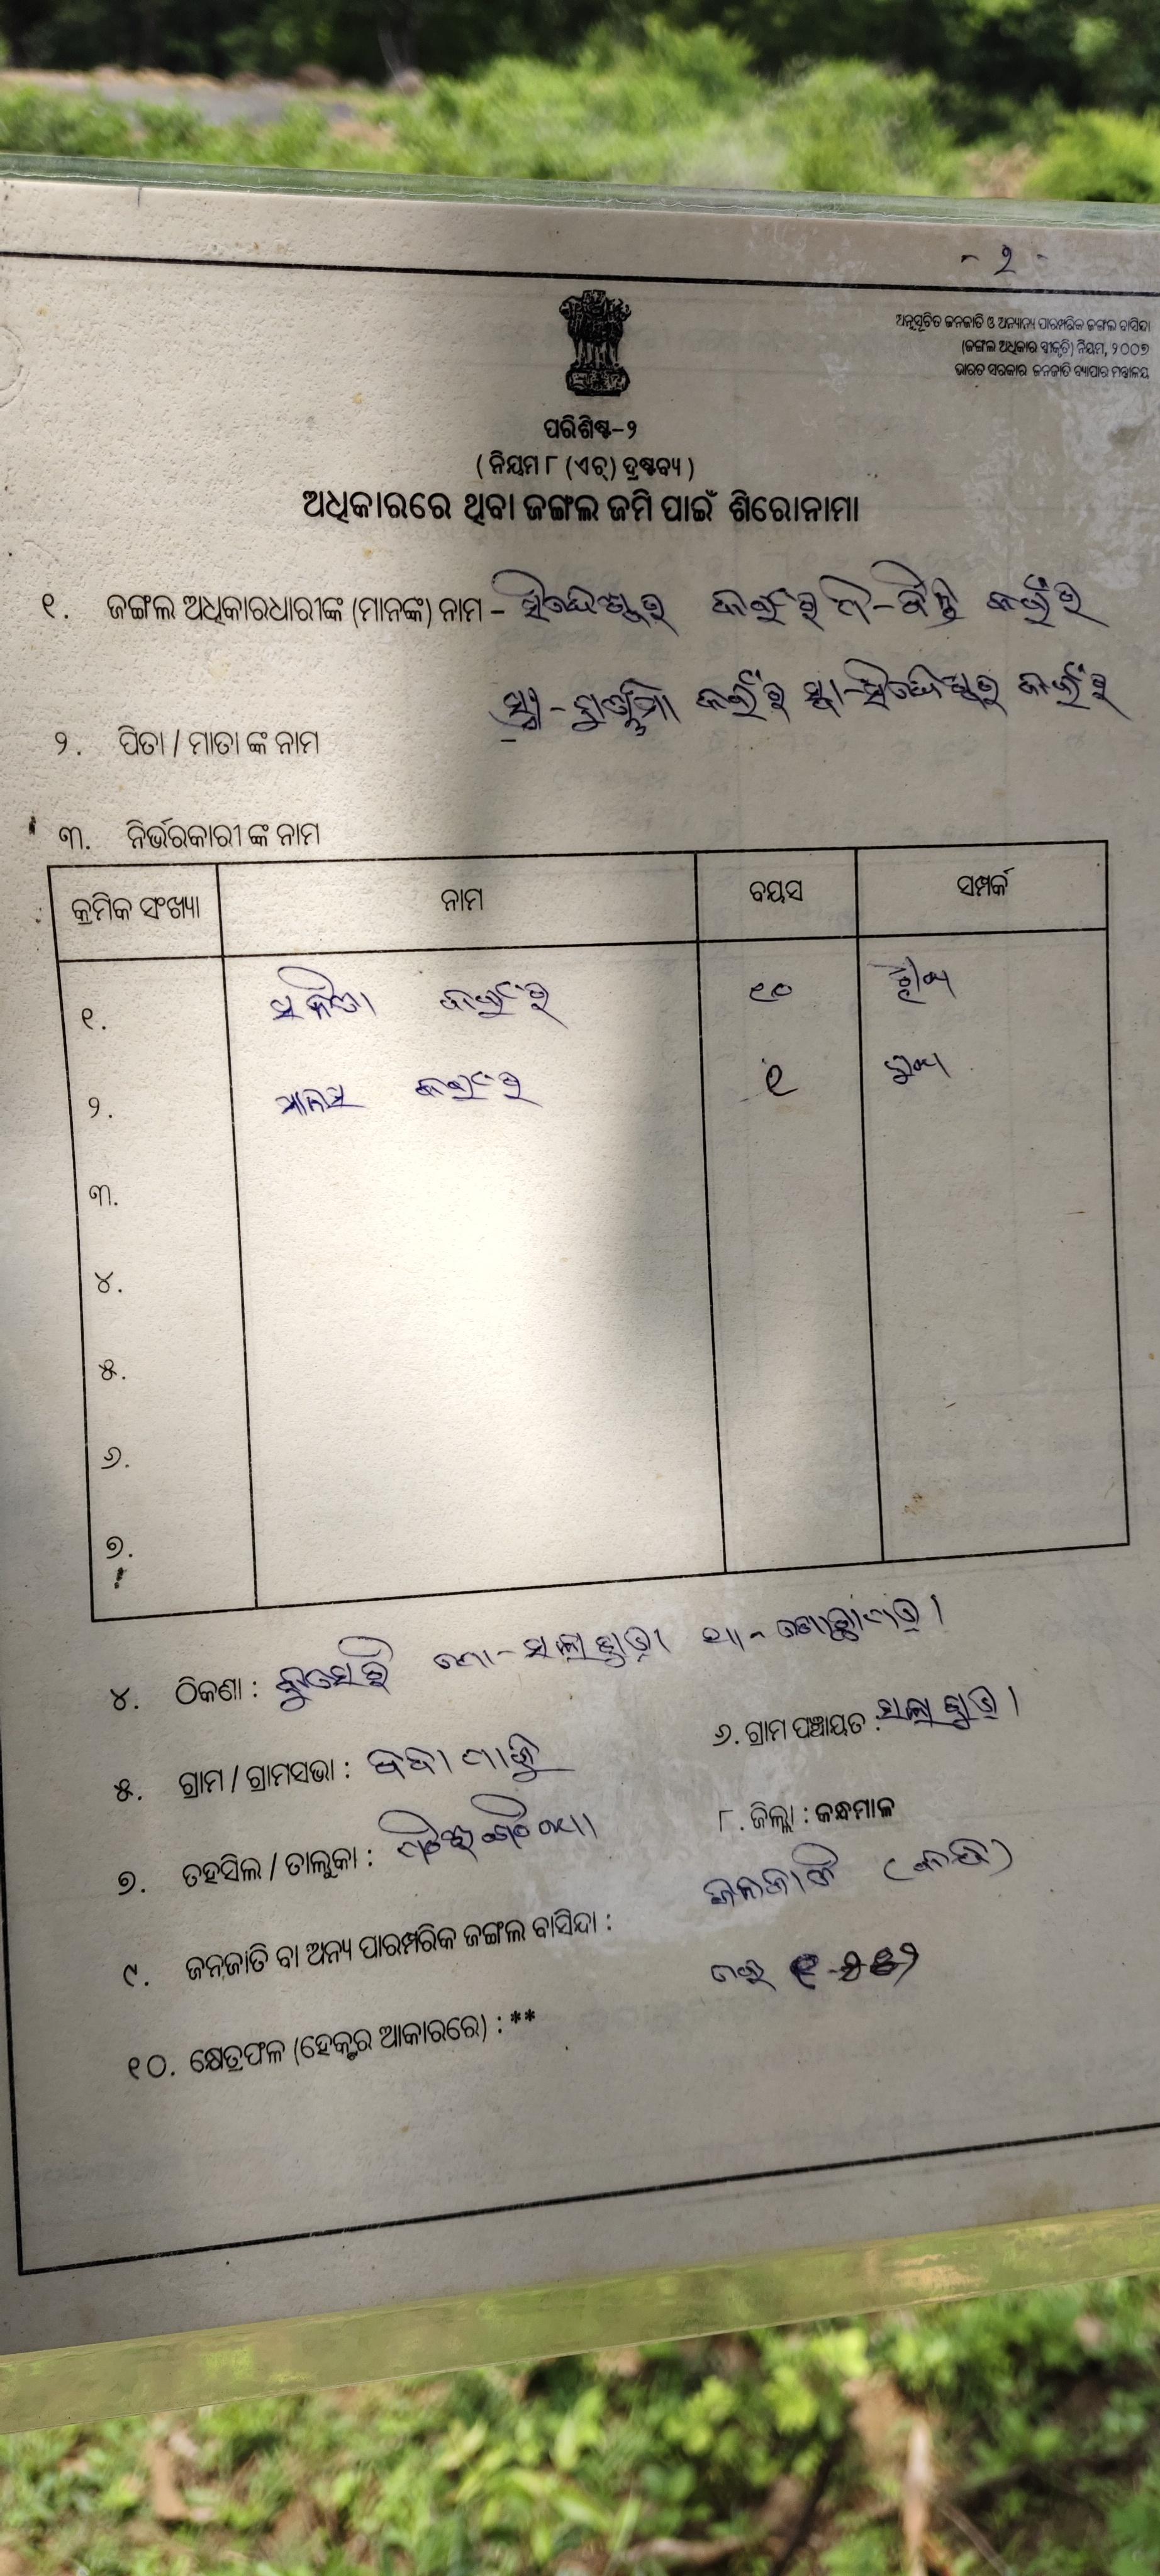 - ୨ -
ଅନୁସୂଚିତ ଜନଜାତି ଓ ଅନ୍ୟାନ୍ୟ ପାରମ୍ପରିକ ଜଙ୍ଗଲ ବାସିନ୍ଦା
(ଜଙ୍ଗଲ ଅଧିକାର ସ୍ୱୀକୃତି) ନିୟମ, ୨୦୦୭
ଭାରତ ସରକାର ଜନଜାତି ବ୍ୟାପାର ମନ୍ତ୍ରାଳୟ
ପରିଶିଷ୍ଟ-୨
( ନିୟମ ୮ (ଏଚ୍) ଦ୍ରଷ୍ଟବ୍ୟ )
ଅଧିକାରରେ ଥିବା ଜଙ୍ଗଲ ଜମି ପାଇଁ ଶିରୋନାମା
୧. ଜଙ୍ଗଲ ଅଧିକାରଧାରୀଙ୍କ (ମାନଙ୍କ) ନାମ - ସିଦ୍ଧେଶ୍ୱର କହଁର
ସ୍ତ୍ରୀ - ପୂର୍ଣ୍ଣମା କହଁର ସ୍ୱା-ସିଦ୍ଧେଶ୍ୱର କହଁର
୨. ପିତା / ମାତା ଙ୍କ ନାମ
୩. ନିର୍ଭରକାରୀ ଙ୍କ ନାମ
କ୍ରମିକ ସଂଖ୍ୟା ନାମ ବୟସ ସମ୍ପର୍କ
୧. କହଁର ୧୦ ଝିଅ
୨. ମାନସ କହଁର ୧ ପୁଅ
୩.
୪.
୫.
୬.
୭.
୪. ଠିକଣା :
୫. ଗ୍ରାମ / ଗ୍ରାମସଭା :
୬. ଗ୍ରାମ ପଞ୍ଚାୟତ :
୭. ତହସିଲ / ତାଲୁକା :
୮. ଜିଲ୍ଲା : କନ୍ଧମାଳ
୯. ଜନଜାତି ବା ଅନ୍ୟ ପାରମ୍ପରିକ ଜଙ୍ଗଲ ବାସିନ୍ଦା : ଜନଜାତି (କନ୍ଧ)
୧୦. କ୍ଷେତ୍ରଫଳ (ହେକ୍ଟର ଆକାରରେ) : **